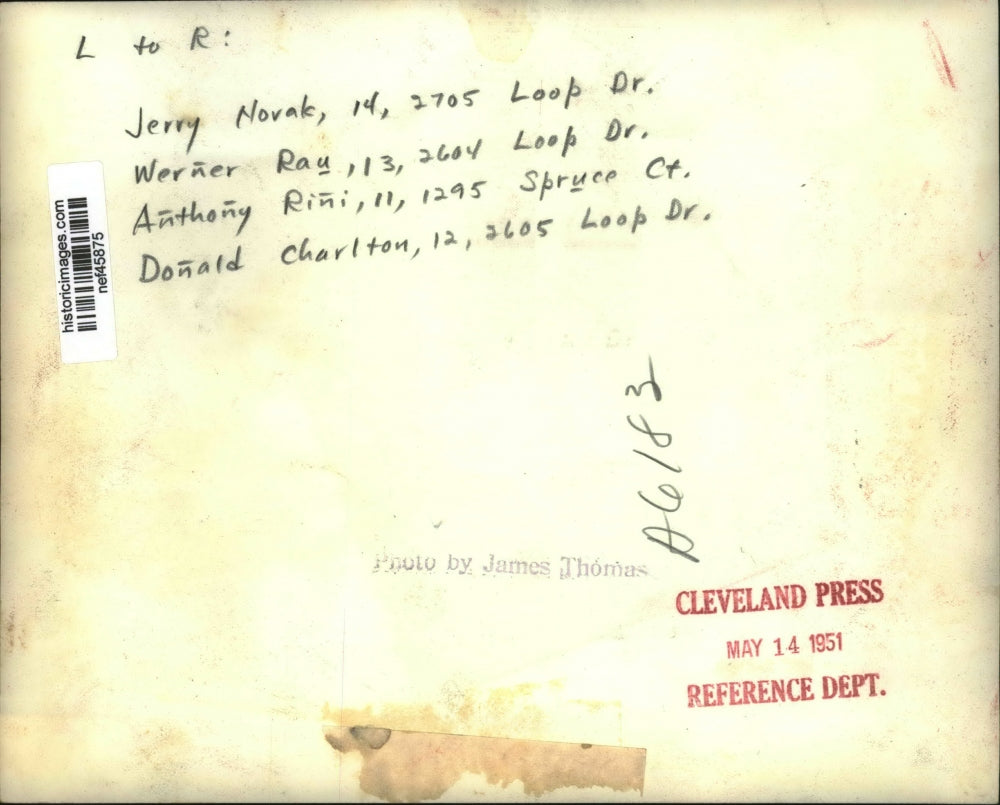 L to R:
Jerry Novak, 14, 2705 Loop Dr.
Werner Rau, 13, 2604 Loop Dr.
Anthony Rini, 11, 1295 Spruce Ct.
Donald Charlton, 12, 2605 Loop Dr.
historicimages.com
nef45875
A6183
Photo by James Thomas
CLEVELAND PRESS
MAY 14 1951
REFERENCE DEPT.